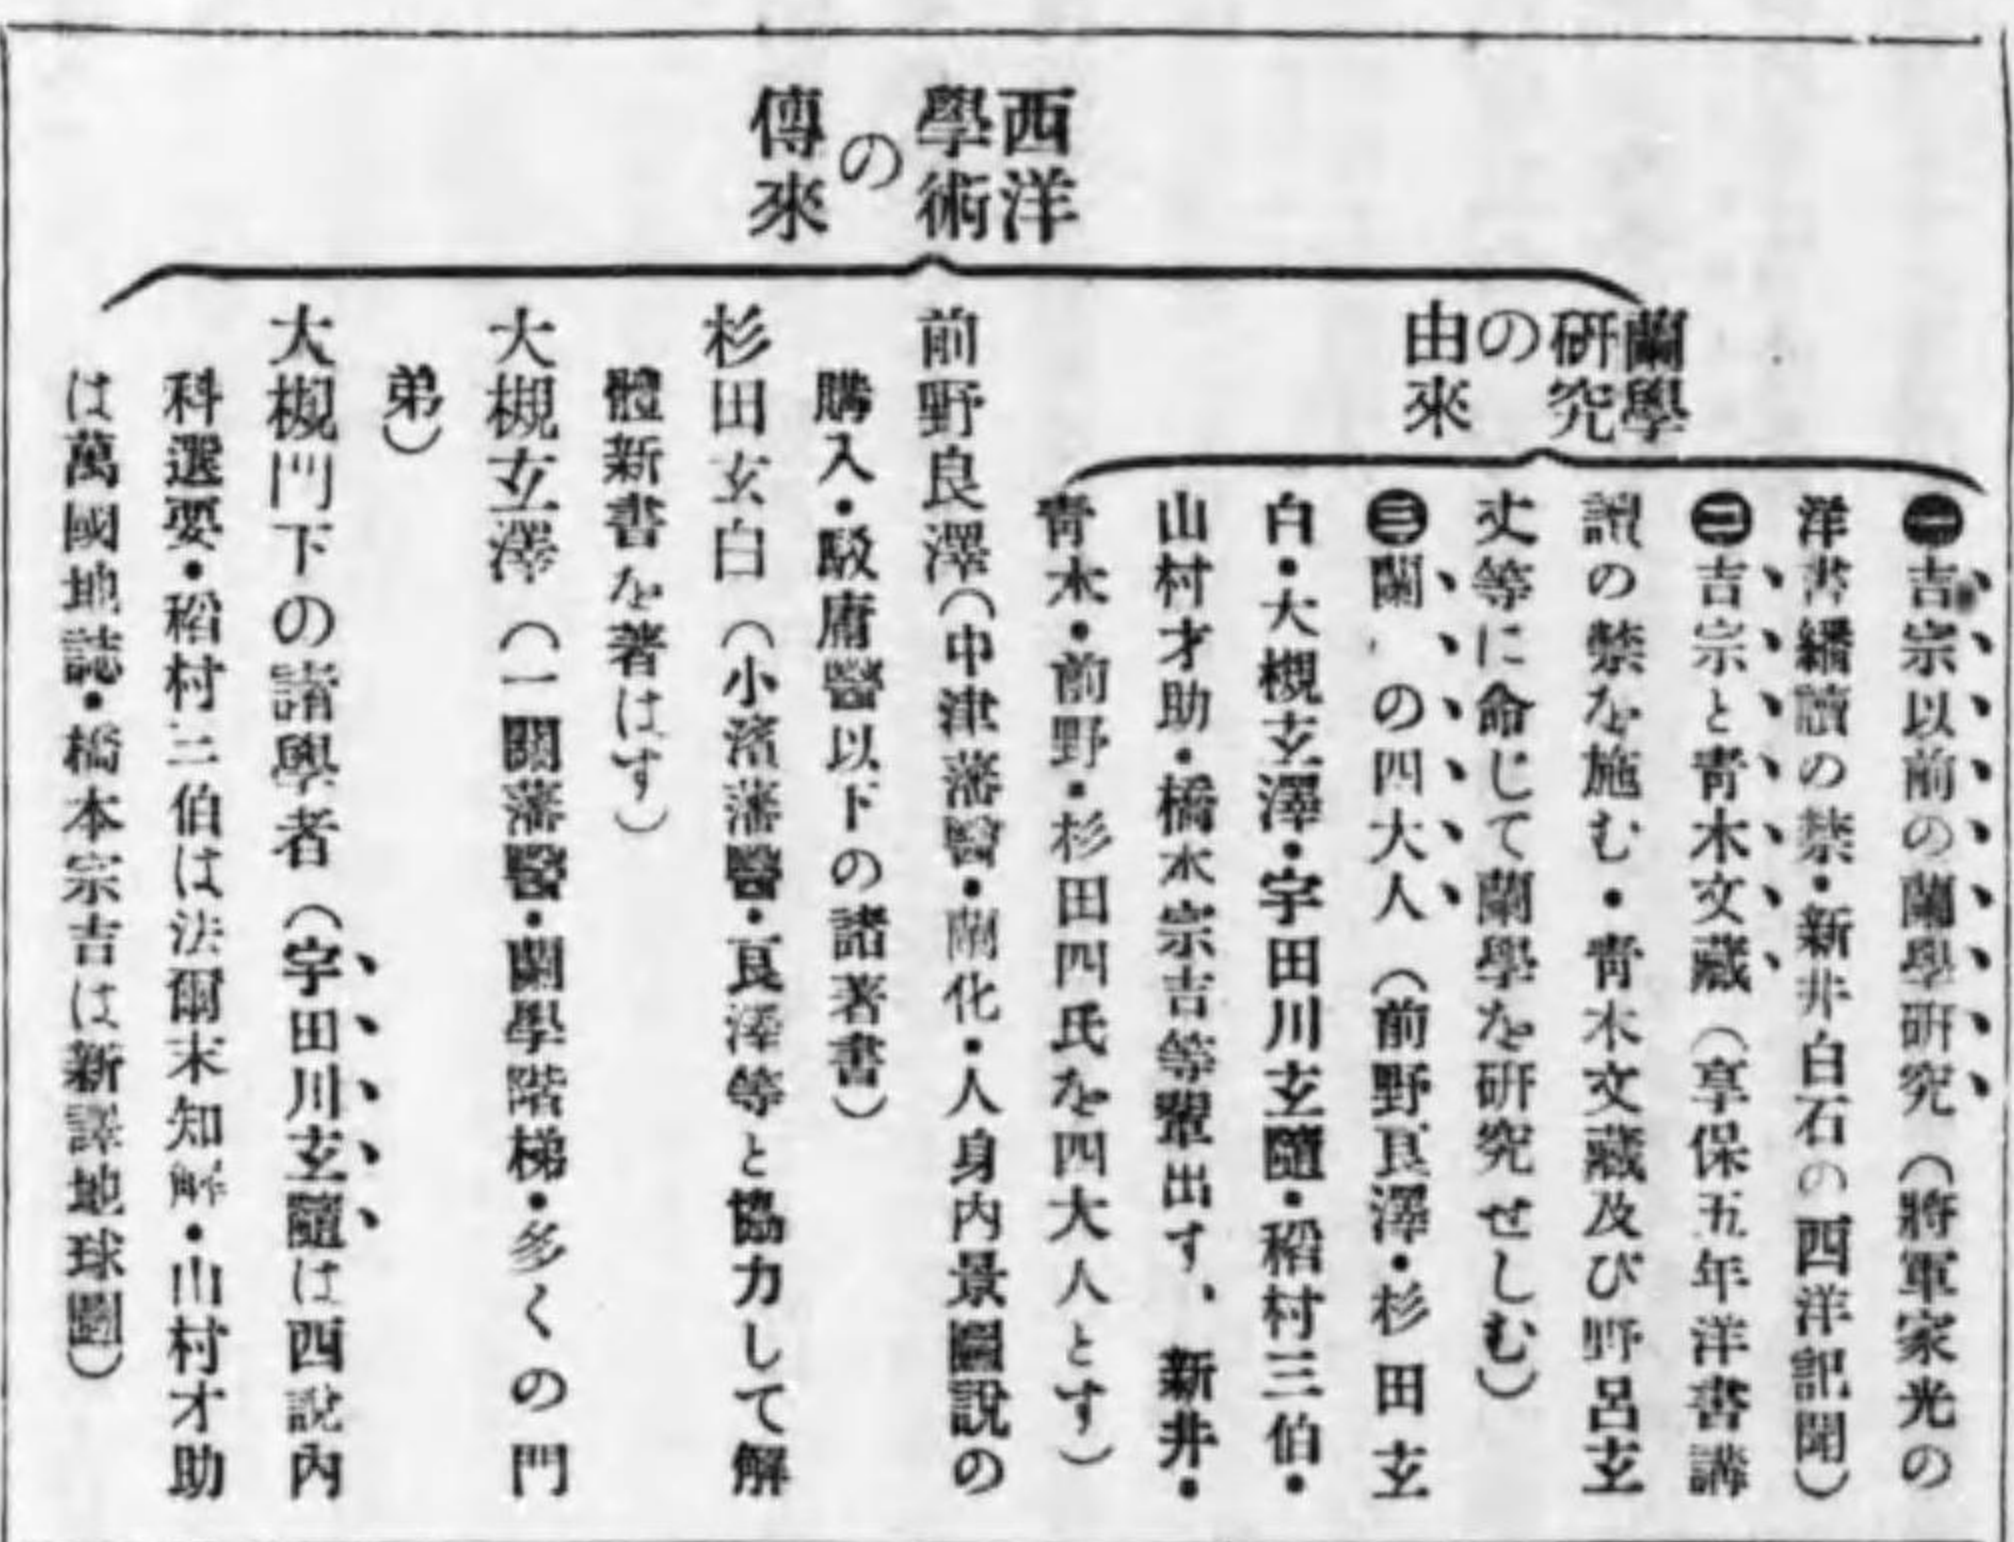 西洋
學術
の
傳來
蘭學
研究
の
由來
㊀吉宗以前の蘭學研究（將軍家光の
洋書繙讀の禁・新井白石の西洋記聞）
㊁吉宗と青木文藏（享保五年洋書講
讀の禁を施む・青木文藏及び野呂玄
丈等に命じて蘭學を研究せしむ）
㊂蘭の四大人（前野良澤・杉田玄
白・大槻玄澤・宇田川玄隨・稻村三伯・
山村才助・橋本宗吉等輩出す、新井・
青木・前野・杉田四氏を四大人とす）
前野良澤（中津藩醫・蘭化・人身內景圖說の
購入・殿府醫以下の諸著書）
杉田玄白（小濱藩醫・良澤等と協力して解
體新書を著はす）
大槻玄澤（一關藩醫・蘭學階梯・多くの門
弟）
大槻門下の諸學者（宇田川玄隨は西說內
科選要・稻村三伯は法爾末知解・山村才助
は萬國地誌・橋本宗吉は新譯地球圖）